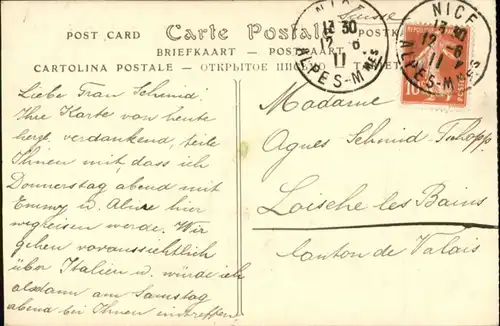 POST CARD Carte Postale POSTKA
BRIEFKAART — POSTPAART
CARTOLINA POSTALE — ОТКРЫТОЕ
Suisse
NICE
13 30
12 - 6
11
ALPES-MMES
NICE
13 30
12 - 6
11
ALPES-MMES
10
Liebe Frau Schmid!
Ihre Karte von heute
bergl. verdankend, teile
Ihnen mit, dass ich
Donnerstag abend mit
Emmy u. Aline hier
wegreisen werde. Wir
gehen voraussichtlich
über Italien u. würde ich
alsdann am Samstag
abend bei Ihnen eintreffen.
Madame
Agnes Schmid-
Loische les Bains
Canton de Valais